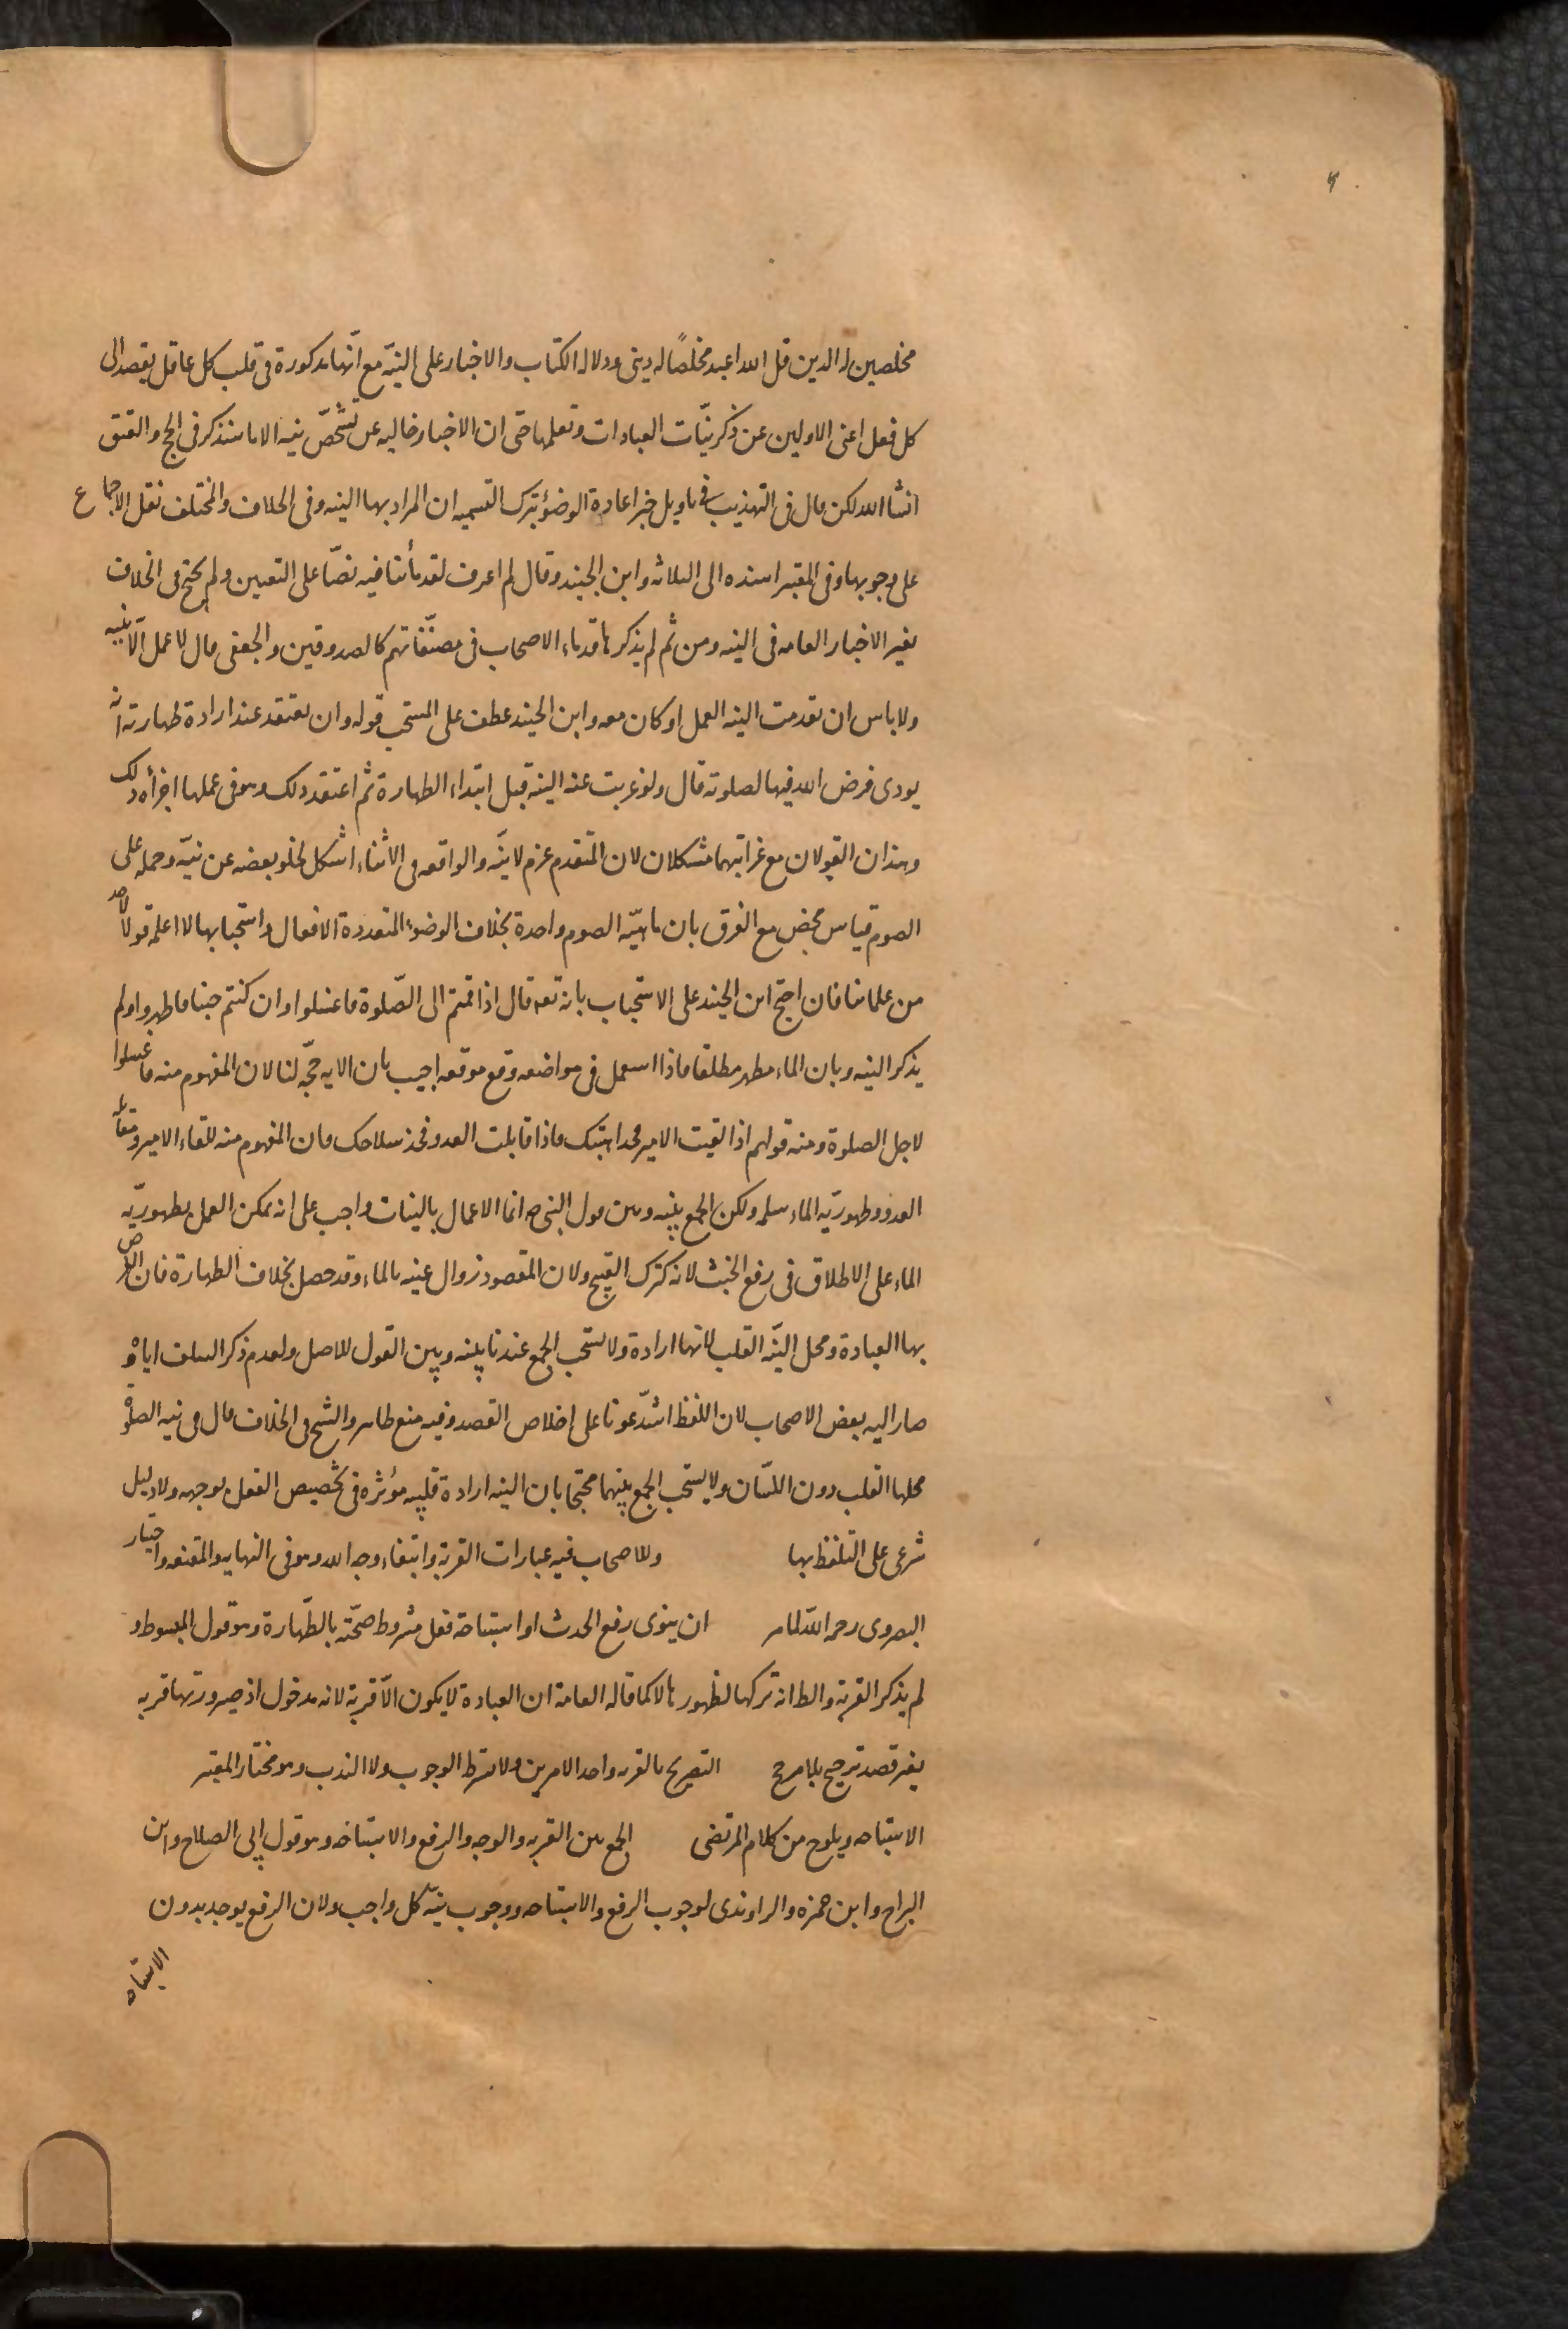 مخلصين له الدين قل الله اعبد مخلصًا له دينى ودلالة الكتاب والاخبار على النيّة مع انّها مذكورة فى قلب كل عاقل يقصد الى
كل فعل اغنى الاولين عن ذكر نيّات العبادات وتعلمها حتى ان الاخبار خاليه عن تشخّص نيه الا ما سنذكر فى الحج والعتق
انشا الله لكن قال فى التهذيب فى تاويل خبر اعادة الوضؤ بترك التسميه ان المراد بها النيه وفى الخلاف والمختلف نقل الاجماع
على وجوبها وفى المعتبر اسنده الى الثلاثه وابن الجنيد وقال لم اعرف لقدمأئنا فيه نصّا على التعيين ولم يحتج فى الخلاف
بغير الاخبار العامه فى النيه ومن ثم لم يذكرها قدماء الاصحاب فى مصنّفاتهم كالصدوقين والجعفى قال لا عمل الّا بنيه
ولا باس ان تقدمت النيه العمل او كان معه وابن الجنيد عطف على المستحب قوله وان يعتقد عند ارادة طهارته انه
يودى فرض الله فيها لصلوته قال ولو عزبت عنه النيه قبل ابتداء الطهارة ثم اعتقد ذلك وهو فى عملها اجزأه ذلك
وهذان القولان مع غرابتهما مشكلان لان المتقدم عزم لا نيّه والواقعه فى الاثناء اشكل لخلو بعضه عن نيّه وحمله على
الصوم قياس محض مع الفرق بان ماهيّه الصوم واحدة بخلاف الوضوء المتعددة الافعال واستحبابها لا اعلمه قولا لاحد
من علمائنا فان احتج ابن الجنيد على الاستحباب بانه تعه قال اذا قمتم الى الصّلوة فاغسلوا وان كنتم جنبا فاطهروا ولم
يذكر النيه وبان الماء مطهر مطلقا فاذا استعمل فى مواضعه وقع موقعه اجيب بان الايه حجّه لنا لان المفهوم منه فاغسلوا
لاجل الصلوة ومنه قولهم اذا لقيت الامير فخذ اهبتك فاذا قابلت العدو فخذ سلاحك فان المفهوم منه للقاء الامير ومقابله
العدو وطهوريّه الماء مسلمه ولكن الجمع بينه وبين قول النبى ص انما الاعمال بالنيات واجب على انه يمكن العمل بطهوريّه
الماء على الاطلاق فى رفع الخبث لانه كترك القبيح ولان المقصود زوال عينه بالماء وقد حصل بخلاف الطهارة فان الغرض
بها العبادة ومحل النيّه القلب لانها ارادة ولا يستحب الجمع عندنا بينه وبين القول للاصل ولعدم ذكر السلف اياه و
صار اليه بعض الاصحاب لان اللفظ اشدّ عونا على اخلاص القصد وفيه منع ظاهر والشيخ فى الخلاف قال فى نيه الصلوة
محلها القلب دون اللسّان ولا يستحب الجمع بينهما محتجا بان النيه ارادة قلبيه مؤثره فى تخصيص الفعل بوجهه ولا دليل
شرعى على التلفظ بها وللاصحاب فيه عبارات القربة وابتغاء وجه الله وهو فى النهايه والمقنعه واختيار
البصروى رحمه اللّه لما مر ان ينوى رفع الحدث او استباحة فعل مشروط صحّته بالطّهارة وهو قول المبسوط و
لم يذكر القربة والظ انه تركها لظهورها لا كما قاله العامة ان العبادة لا يكون الّا قربة لانه مدخول اذ صيرورتها قربه
بغير قصد ترجيح بلا مرجح التصريح بالقربه واحد الامرين ولا يشترط الوجوب ولا الندب وهو مختار المعتبر
الاستباحه ويلوح من كلام المرتضى الجمع بين القربه والوجه والرفع والاستباحه وهو قول ابى الصلاح وابن
البراج وابن حمزه والراوندى لوجوب الرفع والاستباحه ووجوب نيّه كل واجب ولان الرفع يوجد بدون
الاستباحه